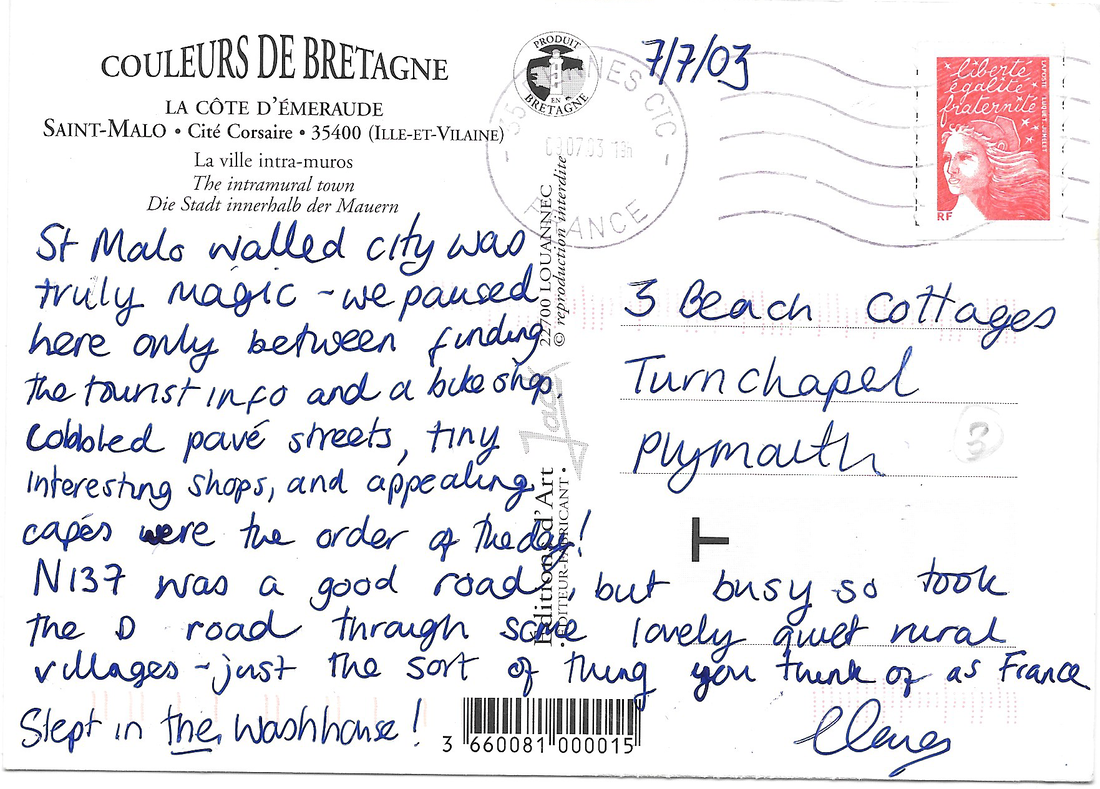 COULEURS DE BRETAGNE
LA CÔTE D'ÉMERAUDE
SAINT-MALO • Cité Corsaire • 35400 (ILLE-ET-VILAINE)
La ville intra-muros
The intramural town
Die Stadt innerhalb der Mauern
PRODUIT
EN
BRETAGNE
7/7/03
35 NES CTC
09 07 03 19h
FRANCE
liberté
égalité
fraternité
RF
LA POSTE LUQUET, JUMELET
St Malo walled city was
truly magic - we paused
here only between finding
the tourist info and a bike shop.
Cobbled pavé streets, tiny
interesting shops, and appealing
cafés were the order of the day!
N137 was a good road, but busy so took
the D road through some lovely quiet rural
villages - just the sort of thing you think of as France
Slept in the washhouse!
3 Beach Cottages
Turnchapel
Plymouth
3
T
22700 LOUANNEC
© reproduction interdite
Jack
Editions d'Art
• EDITEUR-FABRICANT •
3 660081 000015